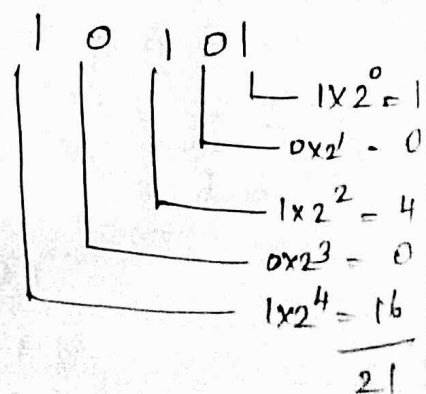 1 0 1 0 1
1x2⁰ = 1
0x2¹ - 0
1x2² = 4
0x2³ = 0
1x2⁴ = 16
21